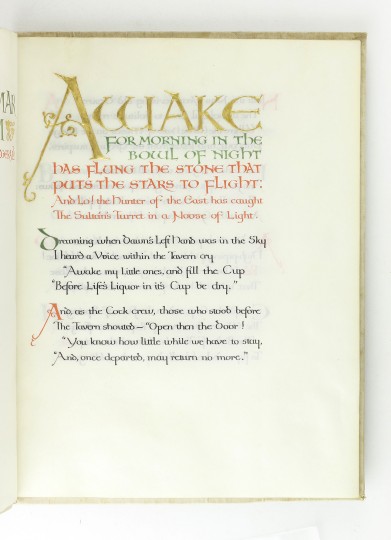 AWAKE
FOR MORNING IN THE
BOWL OF NIGHT
HAS FLUNG THE STONE THAT
PUTS THE STARS TO FLIGHT:
And Lo! the Hunter of the East has caught
The Sultán's Turret in a Noose of Light.
Dreaming when Dawn's Left Hand was in the Sky
I heard a Voice within the Tavern cry
"Awake my Little ones, and fill the Cup
"Before Life's Liquor in its Cup be dry."
And, as the Cock crew, those who stood before
The Tavern shouted — "Open then the Door!
"You know how little while we have to stay,
"And, once departed, may return no more."